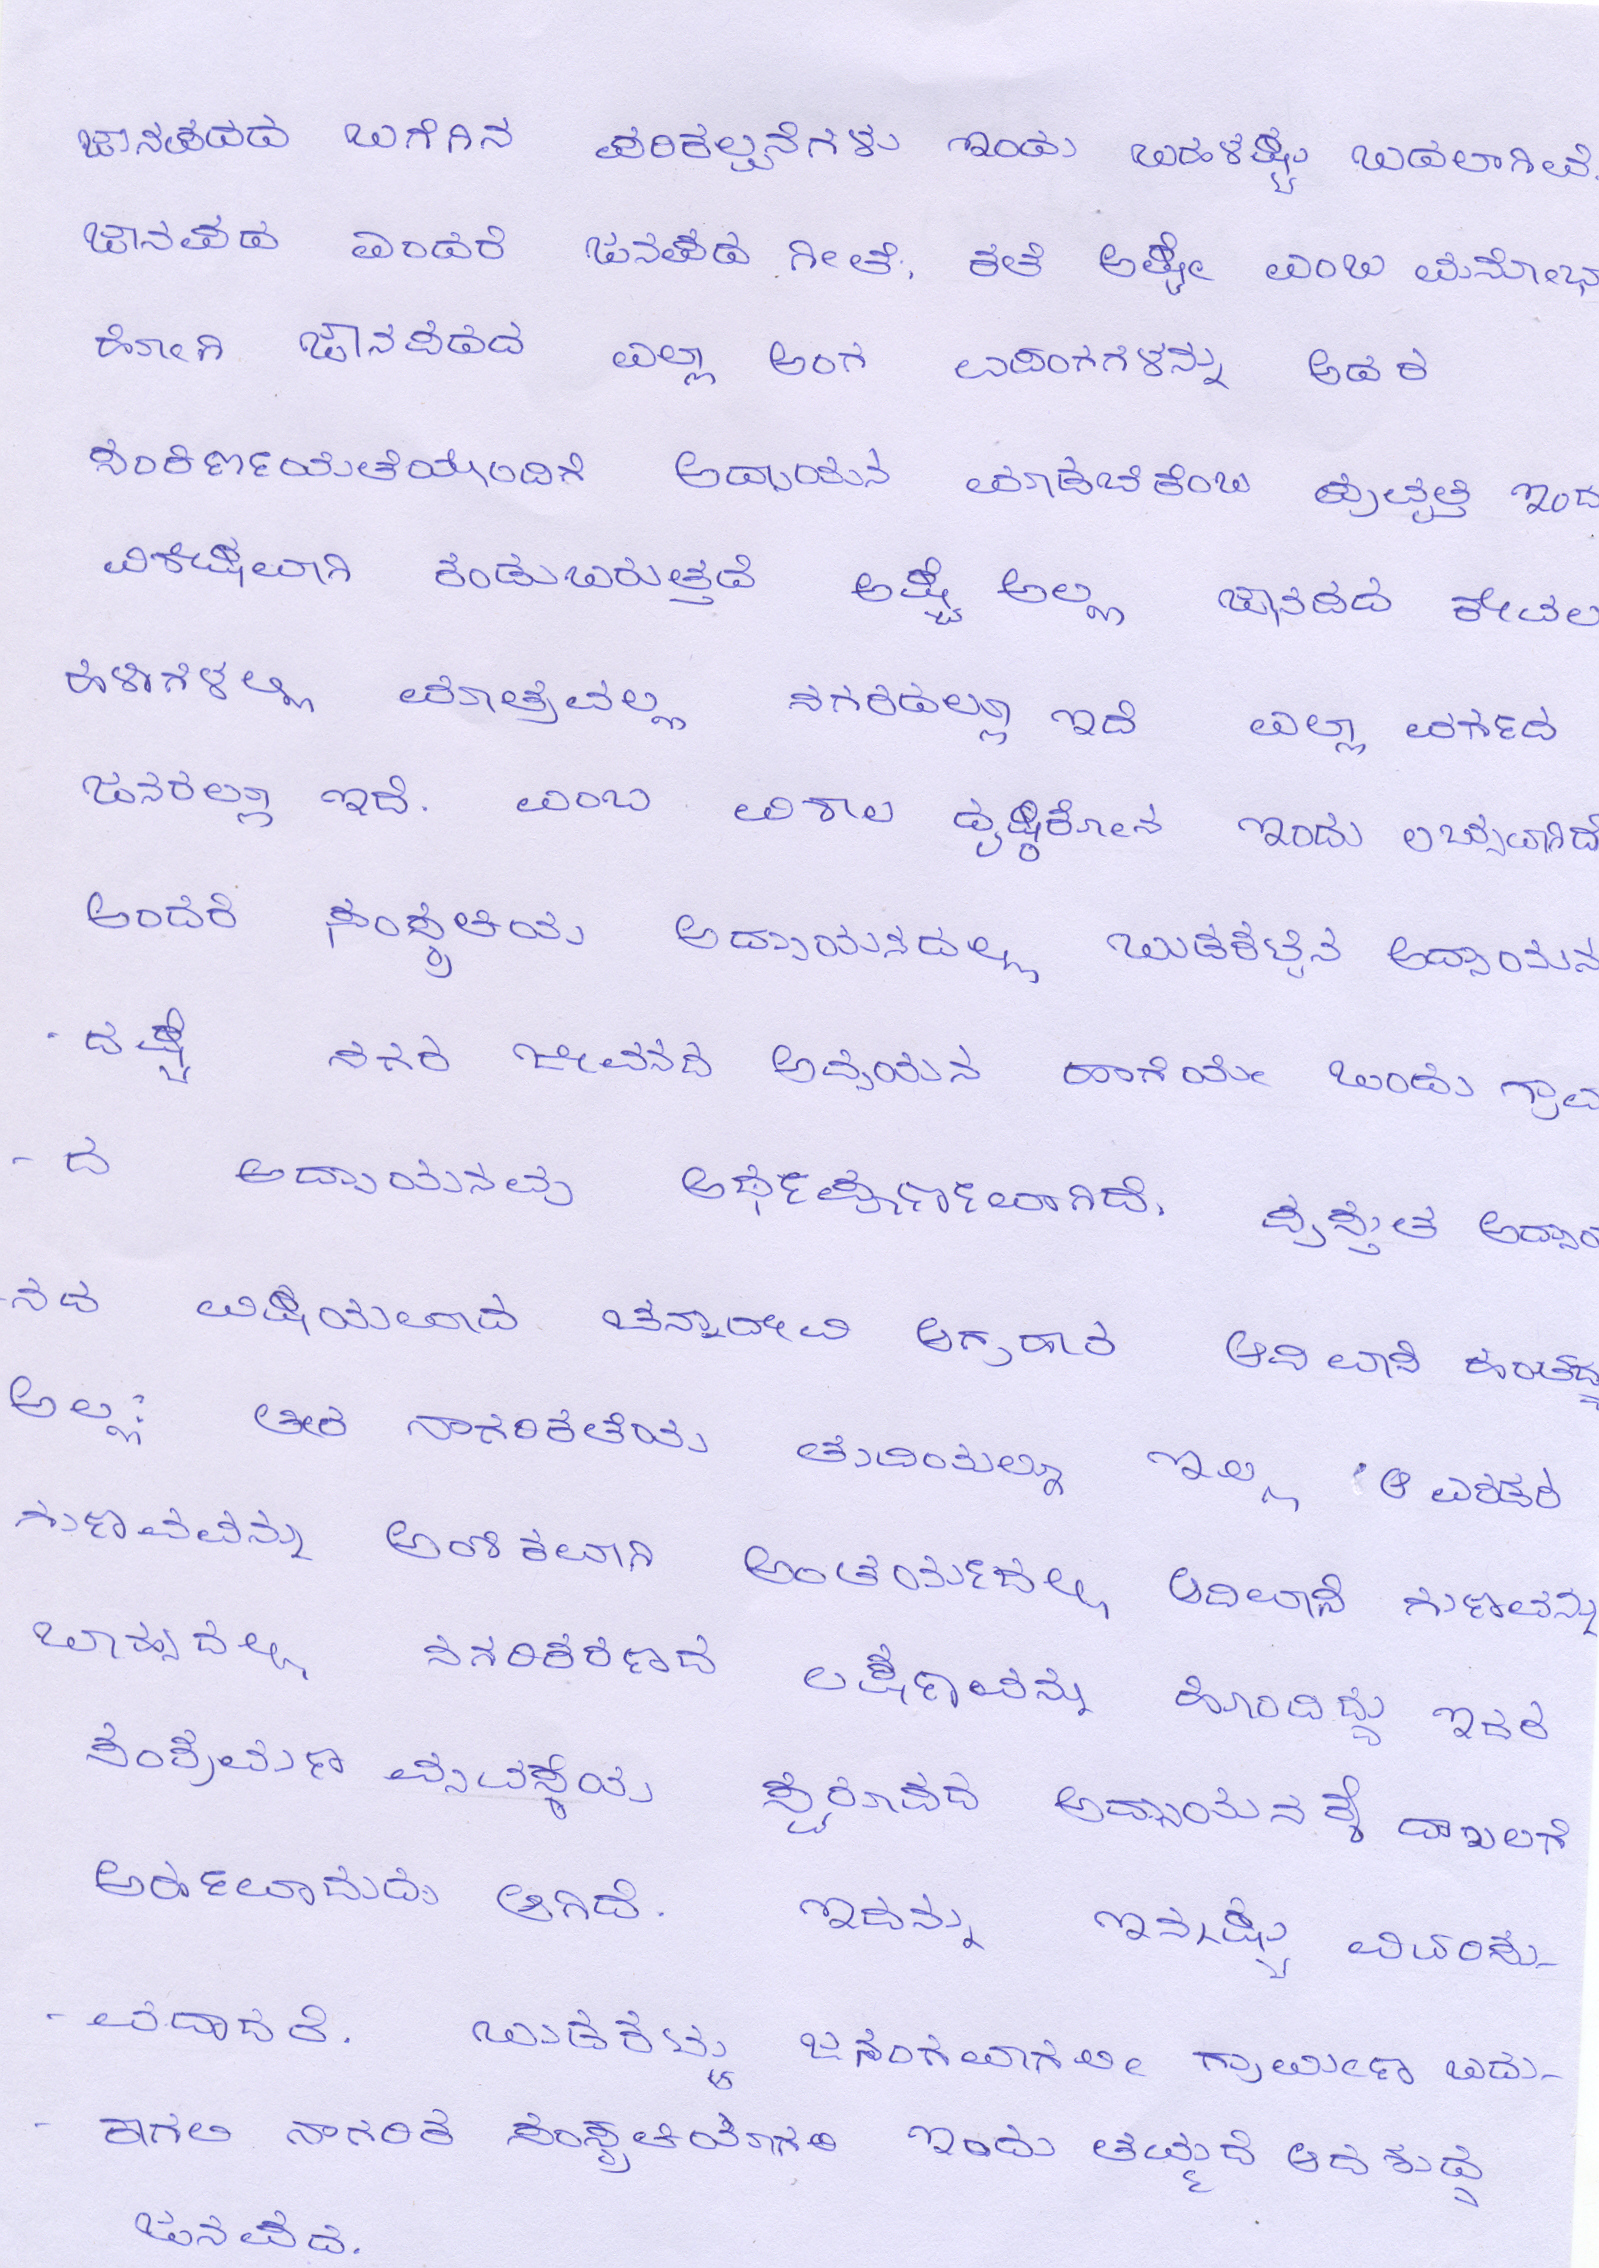 ಜಾನಪದದ ಬಗೆಗಿನ ಪರಿಕಲ್ಪನೆಗಳು ಇಂದು ಬಹಳಷ್ಟು ಬದಲಾಗಿವೆ.
ಜಾನಪದ ಎಂದರೆ ಜನಪದ ಗೀತೆ, ಕತೆ ಅಷ್ಟೇ ಎಂಬ ಮನೋಭಾ
ಹೋಗಿ ಜಾನಪದದ ಎಲ್ಲಾ ಅಂಗ ಉಪಾಂಗಗಳನ್ನು ಅದರ
ಸಂಕಿರ್ಣಯತೆಯೊಂದಿಗೆ ಅದ್ಯಾಯನ ಮಾಡಬೆಕೆಂಬ ಪ್ರವೃತ್ತಿ ಇಂದ
ವಿಶೇಷವಾಗಿ ಕಂಡುಬರುತ್ತದೆ ಅಷ್ಟೆ ಅಲ್ಲ ಜಾನಪದ ಕೇವಲ
ಹಳಿಗಳಲ್ಲಿ ಮಾತ್ರವಲ್ಲ ನಗರದಲ್ಲೂ ಇದೆ ಎಲ್ಲಾ ವರ್ಗದ
ಜನರಲ್ಲೂ ಇದೆ. ಎಂಬ ವಿಶಾಲ ದೃಷ್ಠಿಕೋನ ಇಂದು ಲಭ್ಯವಾಗಿದೆ
ಅಂದರೆ ಸಂಸ್ಕ್ರತಿಯ ಅದ್ಯಾಯನದಲ್ಲಿ ಬುಡಕಟ್ಟಿನ ಅದ್ಯಾಯನ
- ದಷ್ಟೆ ನಗರ ಜೀವನದ ಅದ್ಯಯನ ಹಾಗೆಯೇ ಒಂದು ಗ್ರಾಮ
- ದ ಅದ್ಯಾಯನವು ಅರ್ಥಪೂರ್ಣವಾಗಿದೆ. ಪ್ರಸ್ತುತ ಅದ್ಯಾಯ
-ನದ ವಿಷಯವಾದ ಚನ್ನಾದೇವಿ ಅಗ್ರಹಾರ ಆದಿವಾಸಿ ಹಂತದ್ದು
ಅಲ್ಲ; ತೀರ ನಾಗರಿಕತೆಯ ತುದಿಯಲ್ಲೂ ಇಲ್ಲ ಆ ಎರಡರ
ಗುಣವವನ್ನು ಅಂಶಿಕವಾಗಿ ಅಂತರ್ಯದಲ್ಲಿ ಆದಿವಾಸಿ ಗುಣವನ್ನು
ಬಾಹ್ಯದಲ್ಲಿ ನಗರಿಕರಣದ ಲಕ್ಷಣವನ್ನು ಹೊಂದಿದ್ದು ಇದರ
ಸಂಕ್ರಮಣ ವ್ಯವಸ್ಥೆಯ ಸ್ವರೂಪದ ಅದ್ಯಾಯನಕ್ಕೆ ದಾಖಲಗೆ
ಅರ್ಹವಾದುದು ಆಗಿದೆ. ಇದನ್ನು ಇನ್ನಷ್ಟು ವಿವಂಸು-
- ವದಾದರೆ. ಬುಡಕಟ್ಟು ಜನಂಗವಾಗಲೀ ಗ್ರಾಮೀಣ ಬದು-
- ಕಾಗಲಿ ನಾಗರಿಕ ಸಂಸ್ಕ್ರತಿಯಾಗಲಿ ಇಂದು ತಮ್ಮದೆ ಆದ ಶುದ್ಧ
ಜನಪದ.